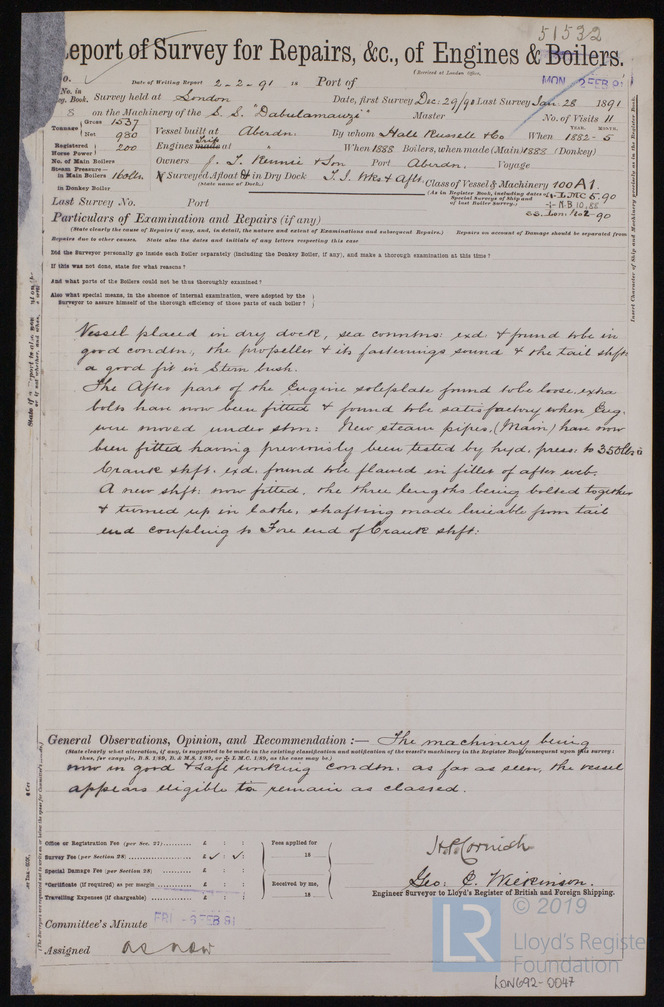 51532
Report of Survey for Repairs, &c., of Engines & Boilers.
(Received at London Office,
No. Date of Writing Report 2-2-91 is Port of MON. 2 FEB 91
No. in Reg. Book. Survey held at London Date, first Survey Dec: 29/90 Last Survey Jan. 28 1891
8 on the Machinery of the S.S. "Dabulamanzi" Master No. of Visits 11
Tonnage Gross 1537
Net 980 Vessel built at Aberdn. By whom Hall Russell & Co When 1882-5 YEAR. MONTH.
Registered Horse Power 200 Engines made at " When 1888 Boilers, when made (Main) 1888 (Donkey)
No. of Main Boilers Owners J. T. Rennie & Son Port Aberdn. Voyage
Steam Pressure— in Main Boilers 160lbs If Surveyed Afloat & in Dry Dock T.I. Wks & Aflt. Class of Vessel & Machinery 100A1.
(State name of Dock.) (As in Register Book, including dates of Special Surveys of Ship and of last Boiler Survey.)
in Donkey Boiler
L.M.C 5.90
N.B. 10.88
Last Survey No. Port SS. Lon. No2-90
Particulars of Examination and Repairs (if any)
(State clearly the cause of Repairs if any, and, in detail, the nature and extent of Examinations and subsequent Repairs.) Repairs on account of Damage should be separated from
Repairs due to other causes. State also the dates and initials of any letters respecting this case
Did the Surveyor personally go inside each Boiler separately (including the Donkey Boiler, if any), and make a thorough examination at this time?
If this was not done, state for what reasons?
And what parts of the Boilers could not be thus thoroughly examined?
Also what special means, in the absence of internal examination, were adopted by the
Surveyor to assure himself of the thorough efficiency of those parts of each boiler?
Vessel placed in dry dock, sea conntns: exd. & found to be in
good condtn., the propeller & its fastenings sound & the tail shft.
a good fit in Stern bush.
The After part of the Engine soleplate found to be loose, extra
bolts have now been fitted & found to be satisfactory when Eng.
were moved under stm: New steam pipes, (Main) have now
been fitted having previously been tested by hyd. press: to 350lbs
Crank shft. exd. found to be flawed in fillet of after web.
A new shft: now fitted, the three lengths being bolted together
& turned up in lathe, shafting made lineable from tail
end coupling to Fore end of Crank shft:
General Observations, Opinion, and Recommendation:— The machinery being
(State clearly what alteration, if any, is suggested to be made in the existing classification and notification of the vessel's machinery in the Register Book, consequent upon this survey:
thus, for example, B.S. 1/89, B. & M.S. 1/89, or L.M.C. 1/89, as the case may be.)
now in good & safe working condtn. as far as seen, the vessel
appears eligible to remain as classed.
Office or Registration Fee (per Sec. 27) £ : : Fees applied for
Survey Fee (per Section 28) £ : : 18
Special Damage Fee (per Section 28) £ : :
*Certificate (if required) as per margin £ : : Received by me,
Travelling Expenses (if chargeable) £ : : 18
H.P. Cornish
Geo: C. Wilkinson.
Engineer Surveyor to Lloyd's Register of British and Foreign Shipping.
Committee's Minute FRI 6 FEB 91
Assigned as now
LR
© 2019
Lloyd's Register
Foundation
LON692-0047
Insert Character of Ship and Machinery precisely as in the Register Book.